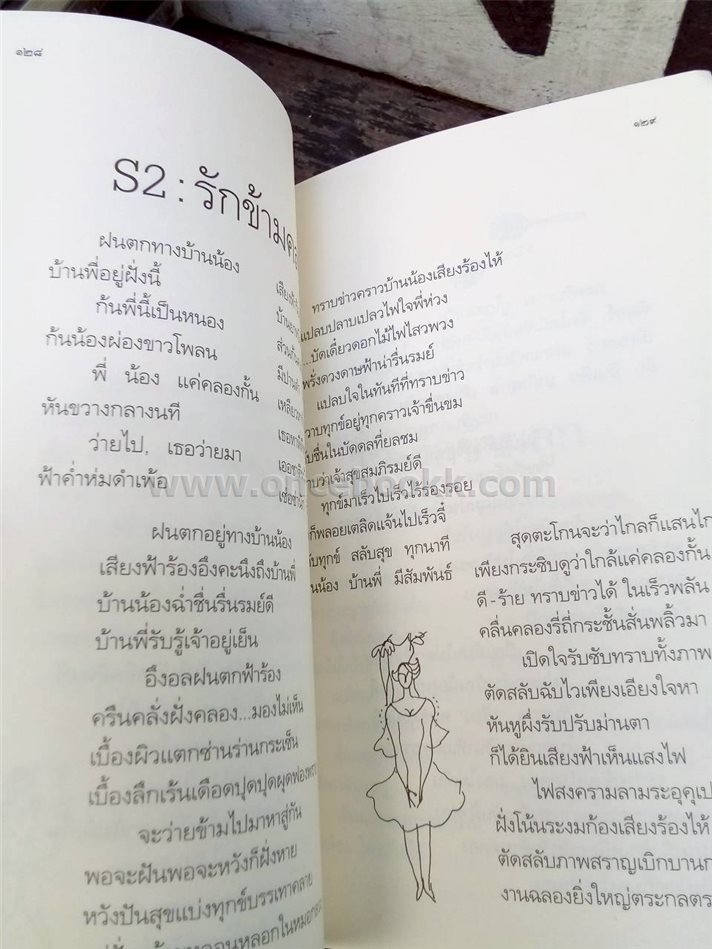 ๑๒๘
S2 : รักข้าม
ฝนตกทางบ้านน้อง
บ้านพี่อยู่ฝั่งนี้
ก้นพี่นี้เป็นหนอง
ก้นน้องผ่องขาวโพลน
พี่ น้อง แค่คลองกั้น
หันขวางกลางนที
ว่ายไป, เธอว่ายมา
ฟ้าค่ำห่มดำเพ้อ
ฝนตกอยู่ทางบ้านน้อง
เสียงฟ้าร้องอึงคะนึงถึงบ้านพี่
บ้านน้องฉ่ำชื่นรื่นรมย์ดี
บ้านพี่รับรู้เจ้าอยู่เย็น
อึงอลฝนตกฟ้าร้อง
ครืนคลั่งฝั่งคลอง...มองไม่เห็น
เบื้องผิวแตกซ่านร่านกระเซ็น
เบื้องลึกเร้นเดือดปุดปุดผุดฟอง
จะว่ายข้ามไปมาหาสู่กัน
พอจะฝันพอจะหวังก็ฝั่งหาย
หวังปันสุขแบ่งทุกข์บรรเทาคลาย
๑๒๙
ทราบข่าวคราวบ้านน้องเสียงร้องไห้
แปลบปลาบเปลวไฟใจพี่ห่วง
...บัดเดี๋ยวดอกไม้ไฟไสวพวง
พรั่งดวงดาษฟ้าน่ารื่นรมย์
แปลบใจในทันทีที่ทราบข่าว
ทุกข์อยู่ทุกคราวเจ้าขื่นขม
ชื่นในบัดดลที่ยลชม
ว่าเจ้าสุขสมภิรมย์ดี
ทุกข์มาเร็วไปเร็วไร้ร่องรอย
ก็พลอยเตลิดแจ้นไปเร็วจี๋
ทุกข์ สลับสุข ทุกนาที
น้อง บ้านพี่ มีสัมพันธ์
สุดตะโกนจะว่าไกลก็แสนไก
เพียงกระซิบดูว่าใกล้แค่คลองกั้น
ดี-ร้าย ทราบข่าวได้ ในเร็วพลัน
คลื่นคลองรี่ถี่กระชั้นสั่นพลิ้วมา
เปิดใจรับซับทราบทั้งภาพ
ตัดสลับฉับไวเพียงเอียงใจหา
หันหูผึ่งรับปรับม่านตา
ก็ได้ยินเสียงฟ้าเห็นแสงไฟ
ไฟสงครามลามระอุคุเป
ฝั่งโน้นระงมก้องเสียงร้องไห้
ตัดสลับภาพสราญเบิกบาน
งานฉลองยิ่งใหญ่ตระกลตร
www.oncebookk.com